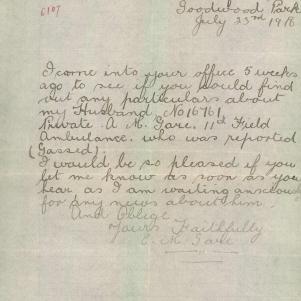 6107
Goodwood Park
July 23rd 1918
I come into your office 5 weeks
ago to see if you would find
out any particulars about
my Husband, No 16761
Private A. M. Gare. 11th Field
Ambulance. who was reported
(Gassed).
I would be so pleased if you
let me know as soon as you
hear, as I am waiting anscously
for any news about him.
And Oblige
Yours Faithfully
E. M. Gare